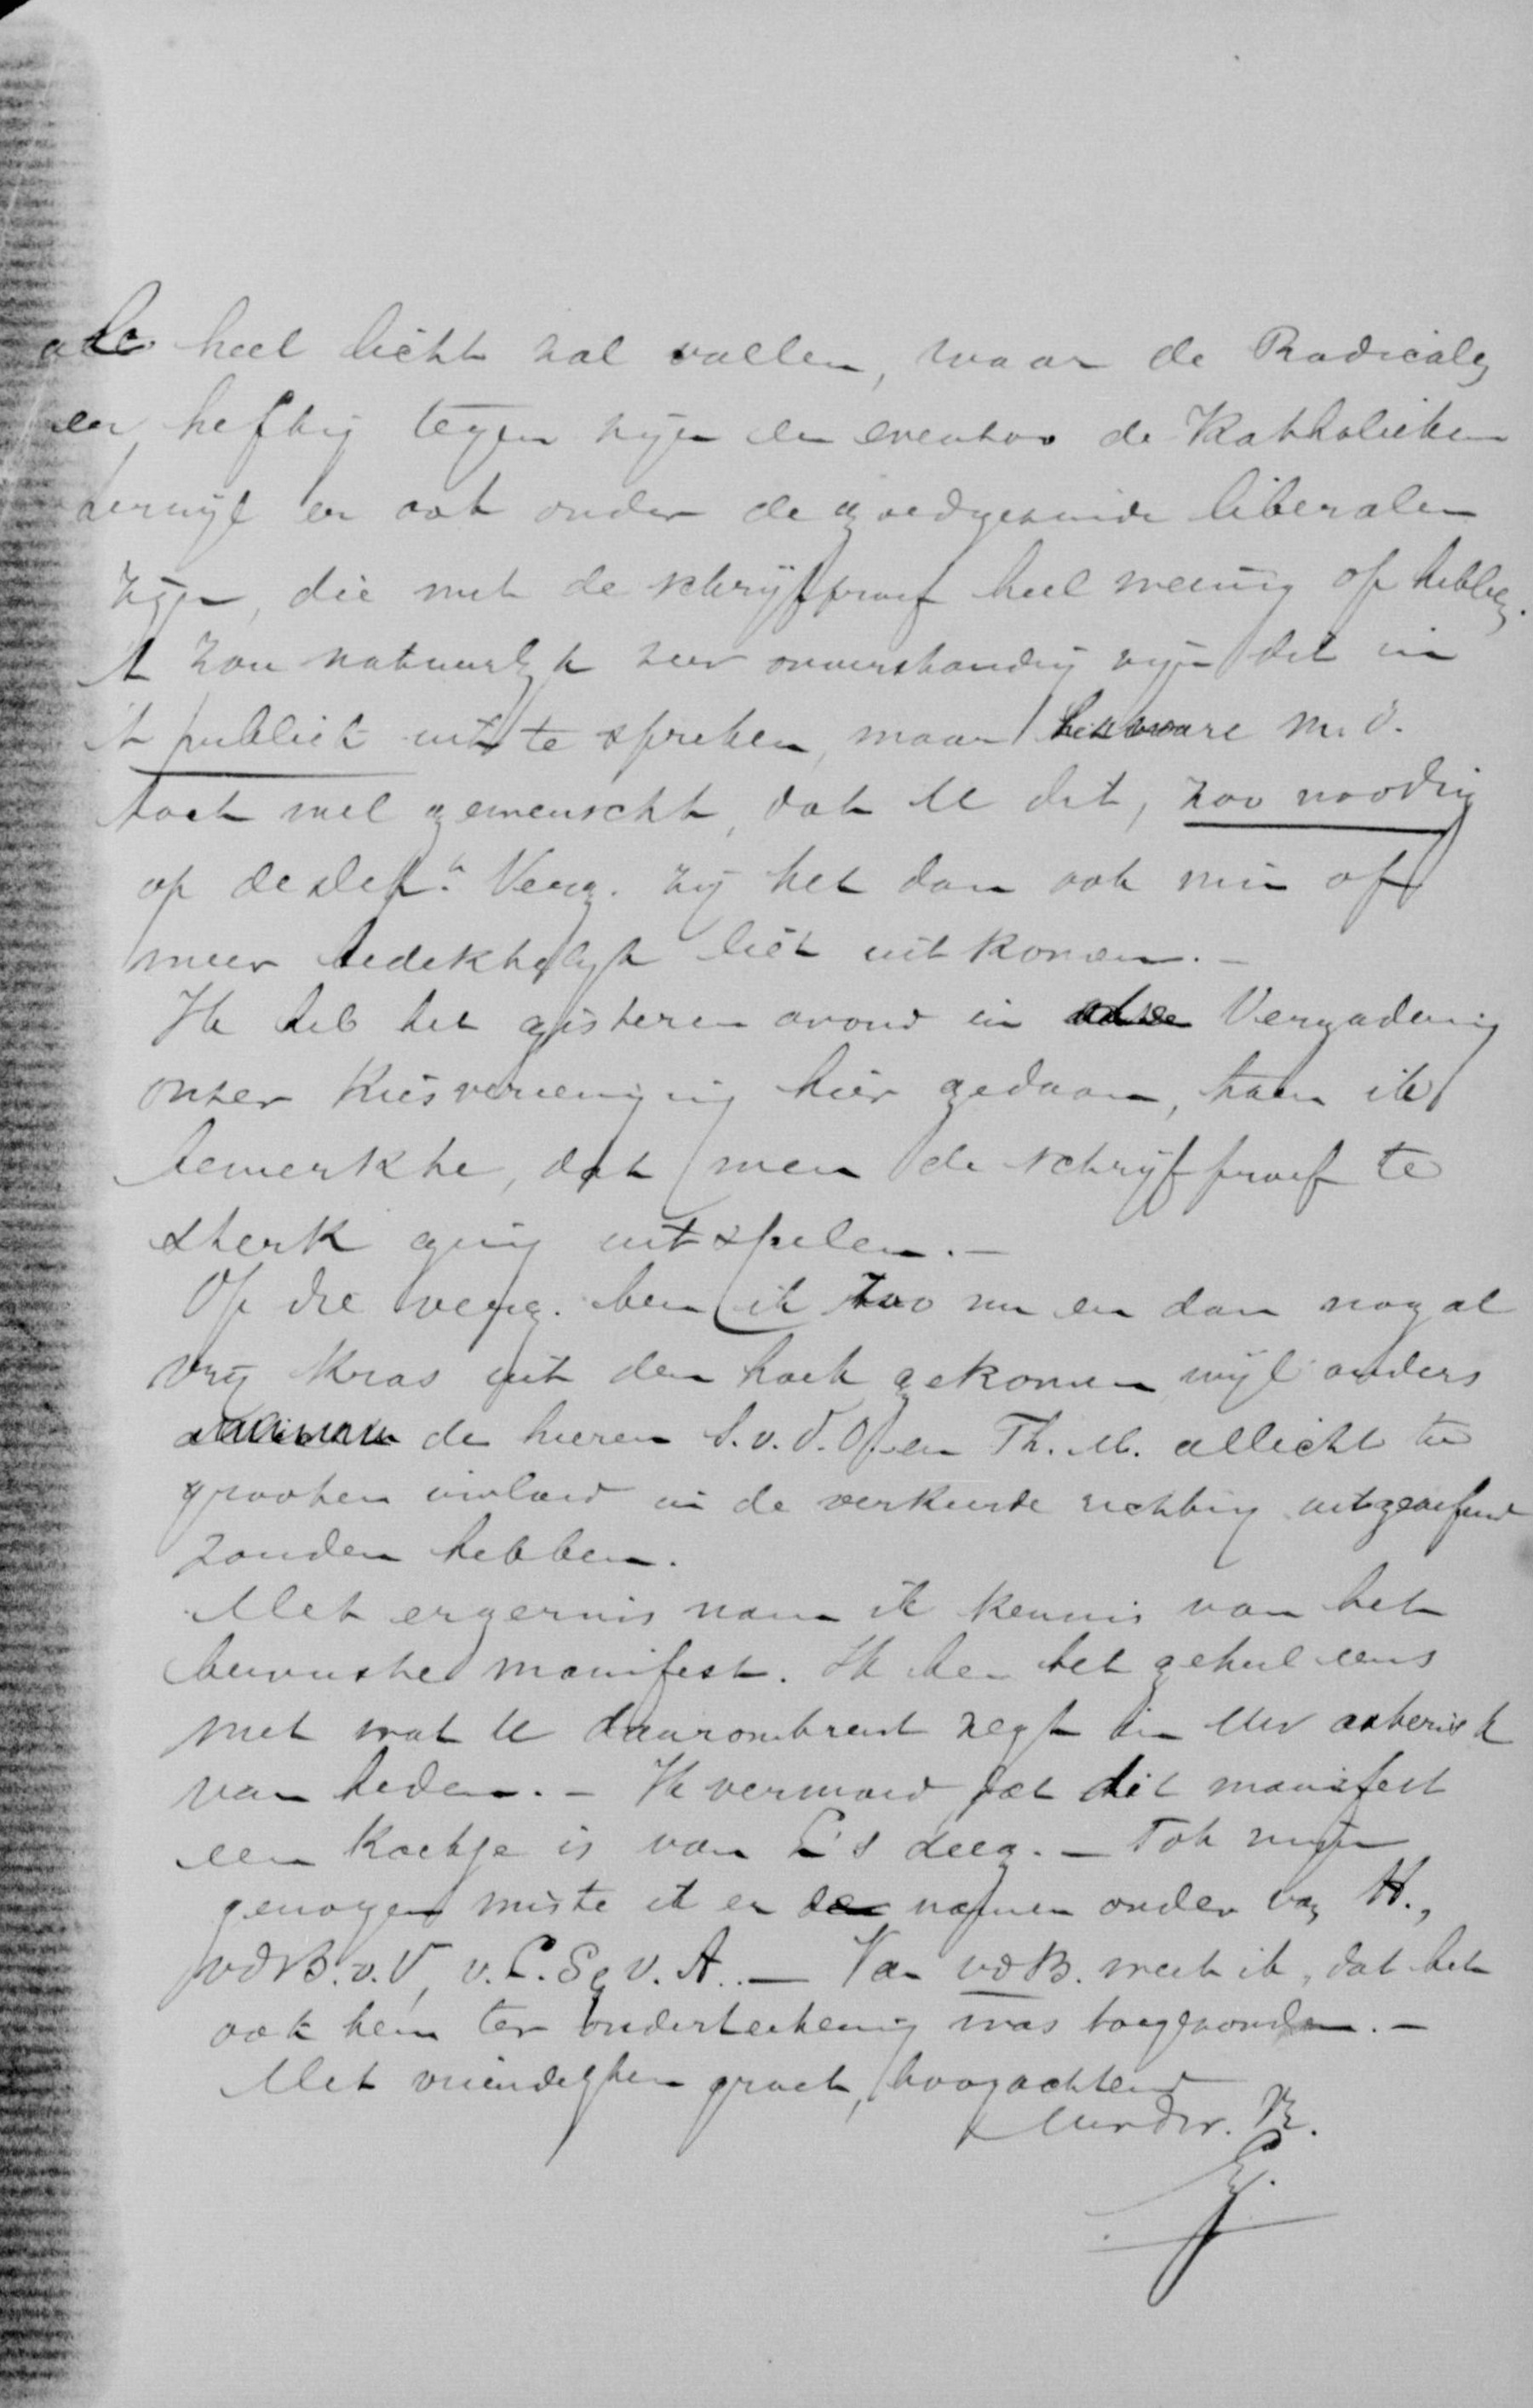 heel licht zal vallen, waar de Radicalen
er heftig tegen zijn en evenzoo de Katholieken
terwijl er ook onder de goedgezinde liberalen
zijn, die met de schrijfproef heel weinig op hebben.
't zou natuurlijk zeer onverstandig zijn dit in
't publiek uit te spreken, maar het ware m.i.
toch wel gewenscht, dat U dit, zoo noodig
op de Verg. zij het dan ook min of
meer bedektelijk liet uitkomen. –
Ik heb het gisteren avond in Vergadering
onzer Kiesvereeniging hier gedaan, toen ik
bemerkte, dat men de schrijfproef te
sterk ging uitspelen. –
Op die verg. ben ik zoo nu en dan nog al
vrij kras uit den hoek gekomen wijl anders
de heeren en Th. M. allicht te
grooten invloed in de verkeerde richting uitgeoefend
zouden hebben.
Met ergernis nam ik kennis van het
bewuste manifest. Ik ben het geheel eens
met wat U daaromtrent zegt in Uw asterisk
van heden. – Ik vermoed dat dit manifest
een koekje is van L's deeg. – Tot mijn
genoegen miste ik er de namen onder van H.,
vdB. v. V, v. L. v. A. – Van vdB. weet ik, dat het
ook hem ter onderteekening was toegezonden. –
Met vriendelijken groet, hoogachtend
Uw dw. Dr.